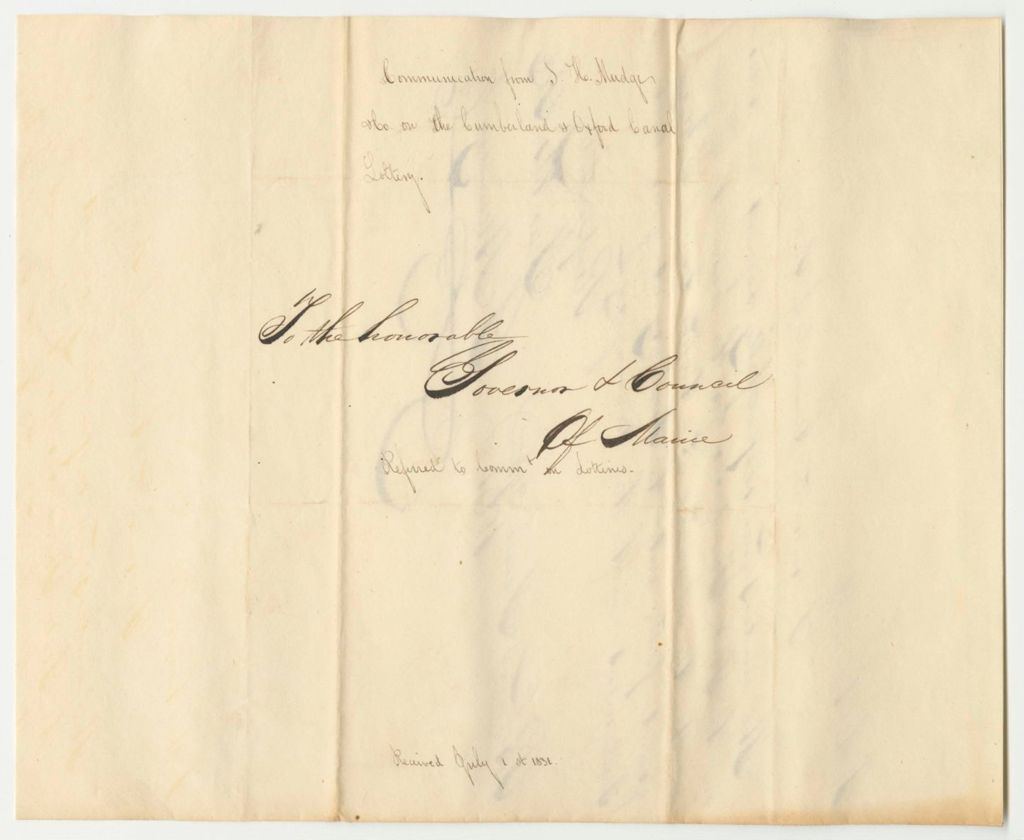 Communication from S. H. Mudge
&Co on the Cumberland & Oxford Canal
Lottery.
To the honorable
Governor & Council
Of Maine
Referred to Commt on Lotteries.
Received July 1st 1831.